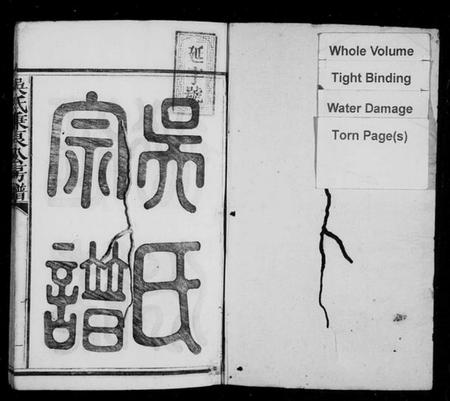 吳氏
宗譜
Whole Volume
Tight Binding
Water Damage
Torn Page(s)